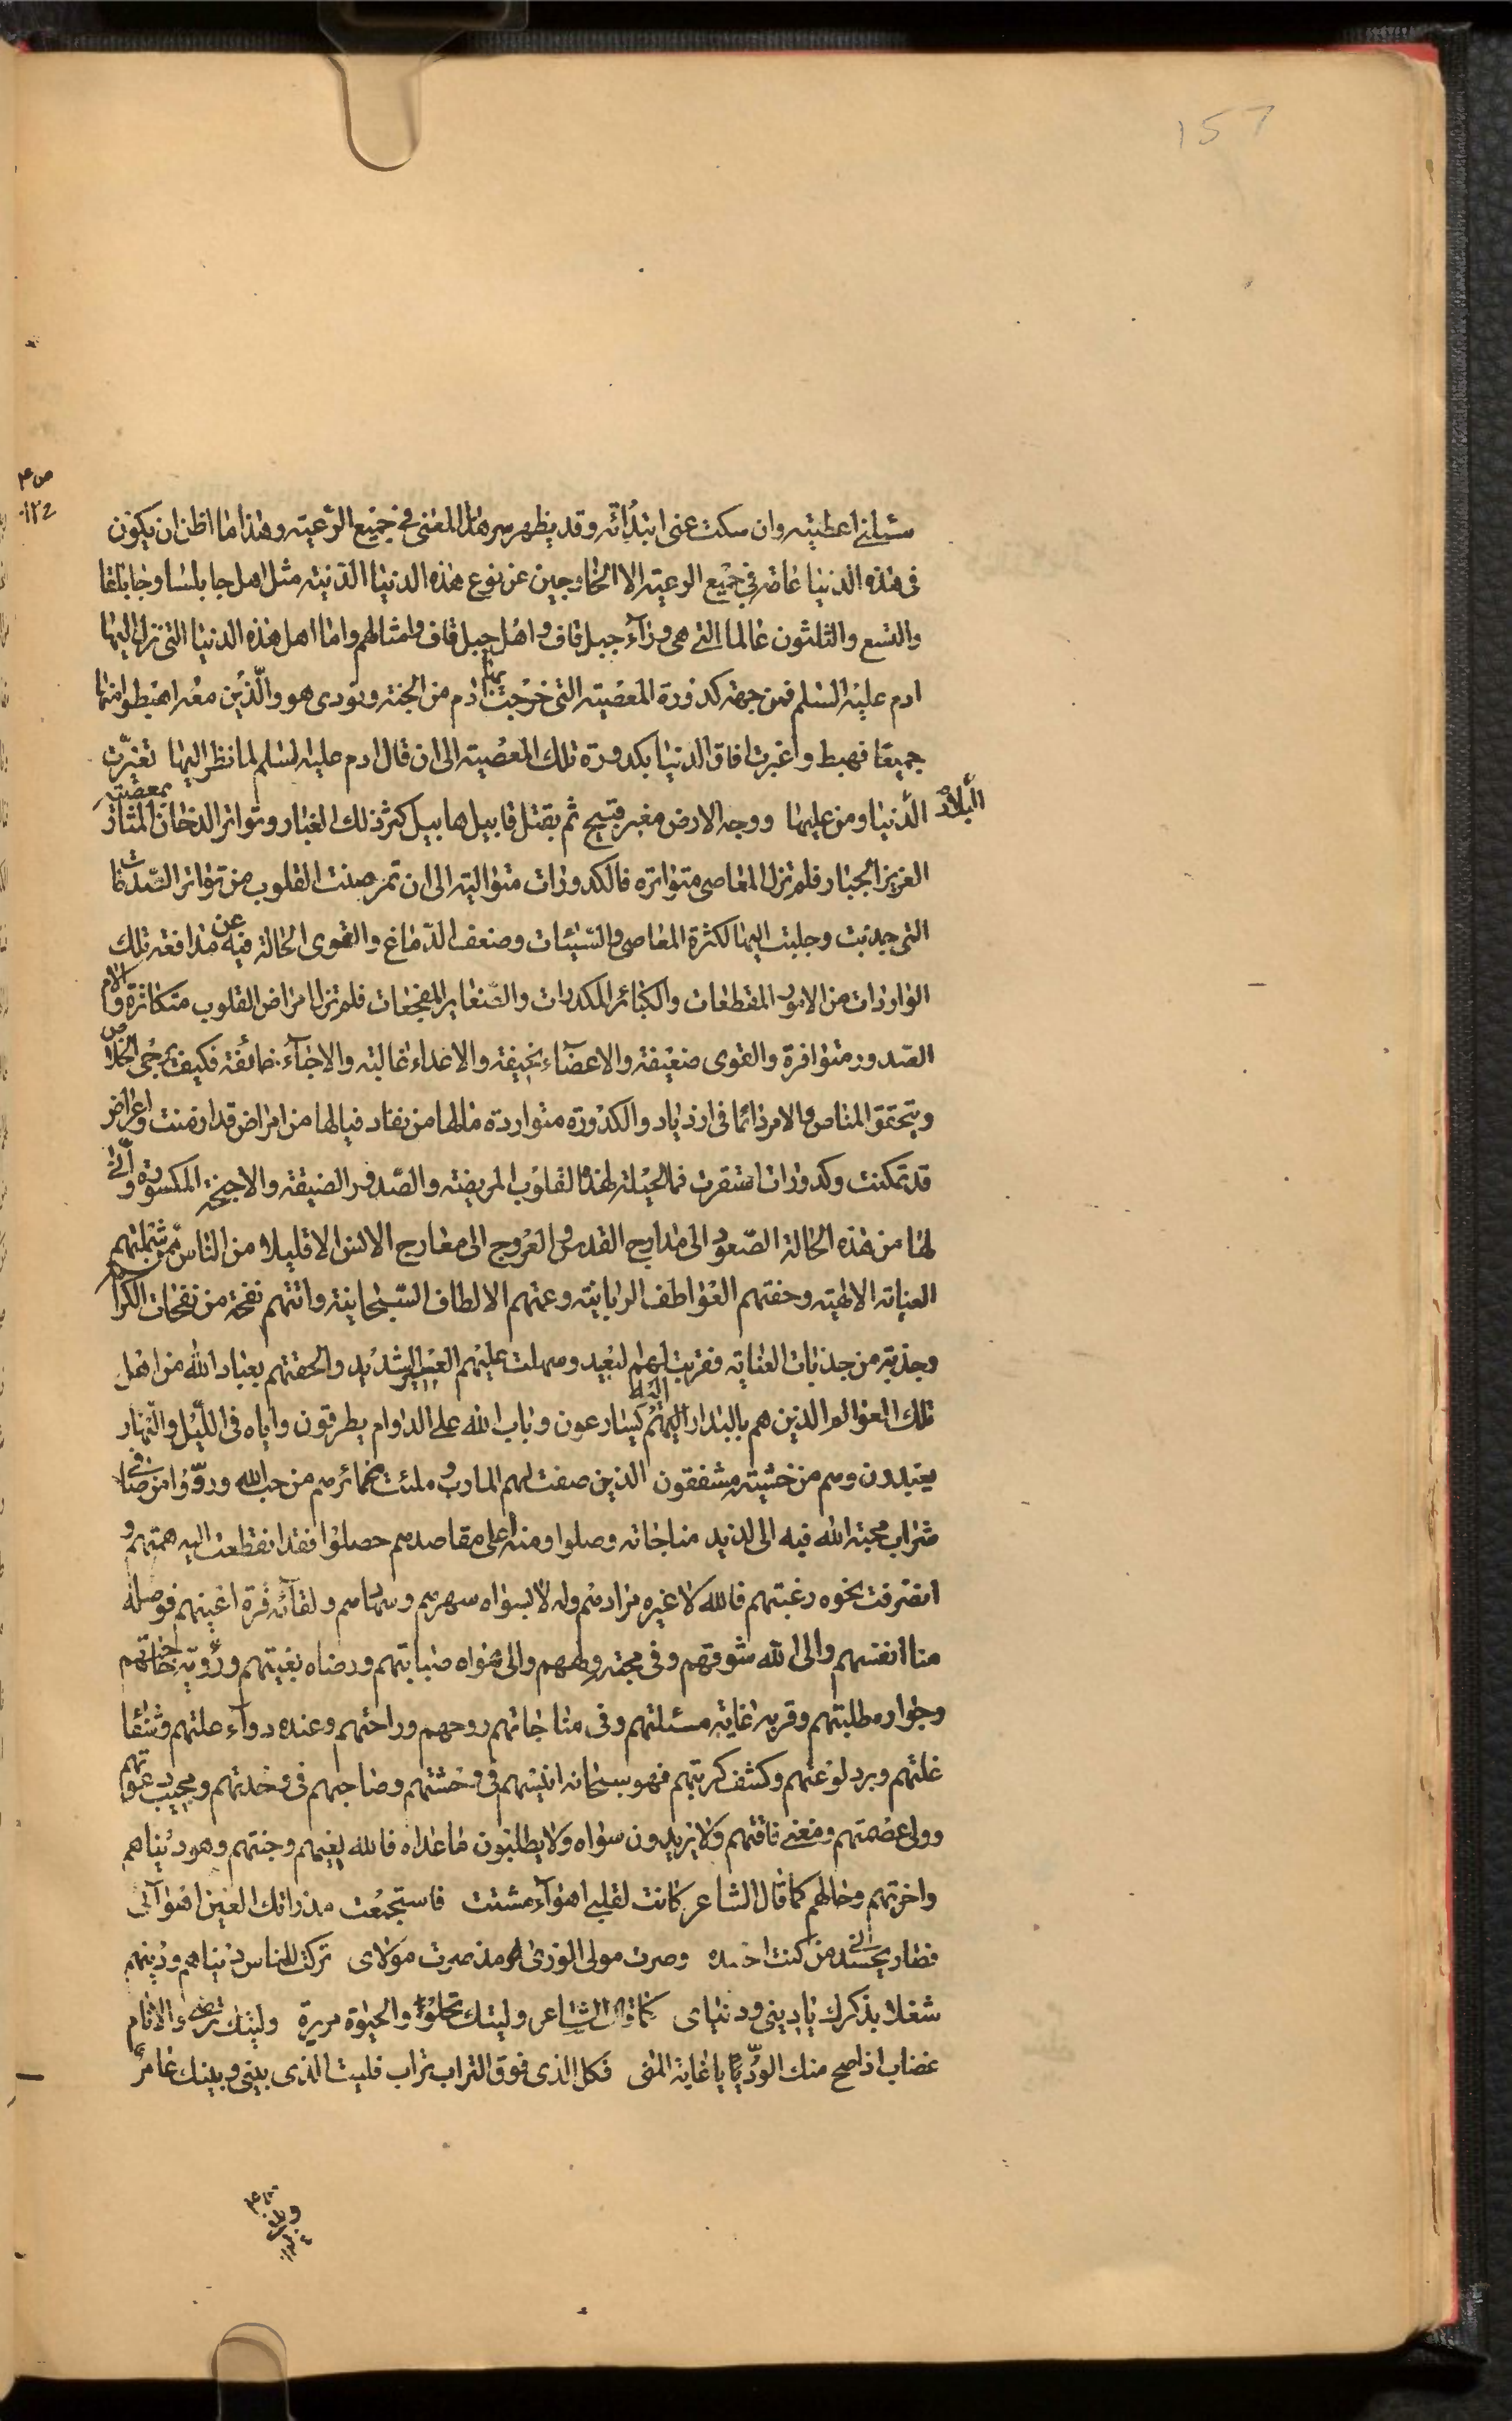 157
ص ۴
سئلنى اعطيته وان سكت عنى ابتدأته وقد يظهر سر هذا المعنى فى جميع الرعيته وهذا ما اظن ان يكون
فى هذه الدنيا عامه فى جميع الرعيته الا الخارجين عن نوع هذه الدنيا الدنيته مثل اهل جابلسا وجابلقا
والتسع والثلثون عالما التى هى ورآء جبل قاف واهل جبل قاف وامثالهم واما اهل هذه الدنيا التى نزل اليها
ادم عليه السلم فمن جهته كدورة المعصيته التى خرجت بها ادم من الجنة ونودى هو والّذين معه اهبطوا منها
جميعا فهبط واغبرت افاق الدنيا بكدورة تلك المعصيته الى ان قال ادم عليه السلم لما نظر اليها تغيّرت
البلاد الدنيا ومن عليها ووجه الارض مغبر قبيح ثم بقتل قابيل هابيل كثر ذلك الغبار وتواتر الدخان المثار بمعصيت
العزيز الجبار فلم تزل المعاصى متواتره فالكدورات متواليته الى ان تمرضت القلوب من تواتر
التى جذبت وجلبت اليها لكثرة المعاصى والسيئات وضعف الدماغ والقوى الحالة فيه عن مدافعة تلك
الواردات من الامور المقطعات والكبائر المكدرات والصغاير المفجعات فلم تزل امراض القلوب متكاثرة والام
الصدور متوافرة والقوى ضعيفة والاعضآء نحيفة والاعداء غالبته والاحبآء خائفة فكيف يرجى الخلاص
ويتحقق المناص والامر دائما فى ازدياد والكدورة متواردة مالها من نفاد فيالها من امراض قد ازمنت واعراض
قد تمكنت وكدورات استقرت فما الحيلة لهذه القلوب المريضة والصدور الضيقة والاجنحة المكسورة وأنّى
لها من هذه الحالة الصعود الى مدارج القدس والعروج الى معارج الانس الا قليلا من الناس ممن شملتهم
العناية الالهيته وحفتهم العواطف الربانيته وعمتهم الالطاف السبحانيته واتتهم نفحة من نفحات الكرم
وجذبة من جذبات العناية فقربت لهم البعيد وسهلت عليهم العسر الشديد والحقتهم بعباد الله من اهل
تلك العوالم الذين هم بالبدار اليه يسارعون وباب الله على الدوام يطرقون واياه فى الليل والنهار
يعبدون وهم من خشيته مشفقون الذين صفت لهم المارب وملئت ضمائرهم من حب الله وروّوا من صافى
شراب محبة الله فبه الى لذيذ مناجاته وصلوا ومنه أعلى مقاصدهم حصلوا فقد انقطعت اليه همتهم و
انصرفت نحوه رغبتهم فالله لا غيره مرادهم وله لا لسواه سهرهم وسهادهم ولقائه قرة اعينهم فوصله
منا انفسهم والى الله شوقهم وفى محبته ولههم والى هواه صبابتهم ورضاه بغيتهم ورؤيته حاجتهم
وجواره مطلبتهم وقربه غاية مسئلتهم وفى مناجاتهم روحهم وراحتهم وعنده دوآء علتهم وشفا
غلتهم وبرد لوعتهم وكشف كربتهم فهو سبحانه انيسهم فى وحشتهم وصاحبهم فى وحدتهم ومجيب دعوتهم
وولى عصمتهم ومغنى فاقتهم ولا يريدون سواه ولا يطلبون ما عداه فالله نعيمهم وجنتهم وهو دنياهم
واخرتهم وحالهم كما قال الشاعر كانت لقلبى اهوآء مشتت فاستجمعت مذ راتك العين اهوآئى
فصار يحسدنى من كنت احسده وصرت مولى الورى مذ صرت مولاى تركت للناس دنياهم ودينهم
شغلا بذكرك يا دينى ودنياى كما قال الشاعر وليتك تحلو والحيوة مريرة وليتك ترضى والانام
غضاب اذا صح منك الودّ يا غاية المنى فكل الذى فوق التراب تراب فليت الذى بينى وبينك عامر